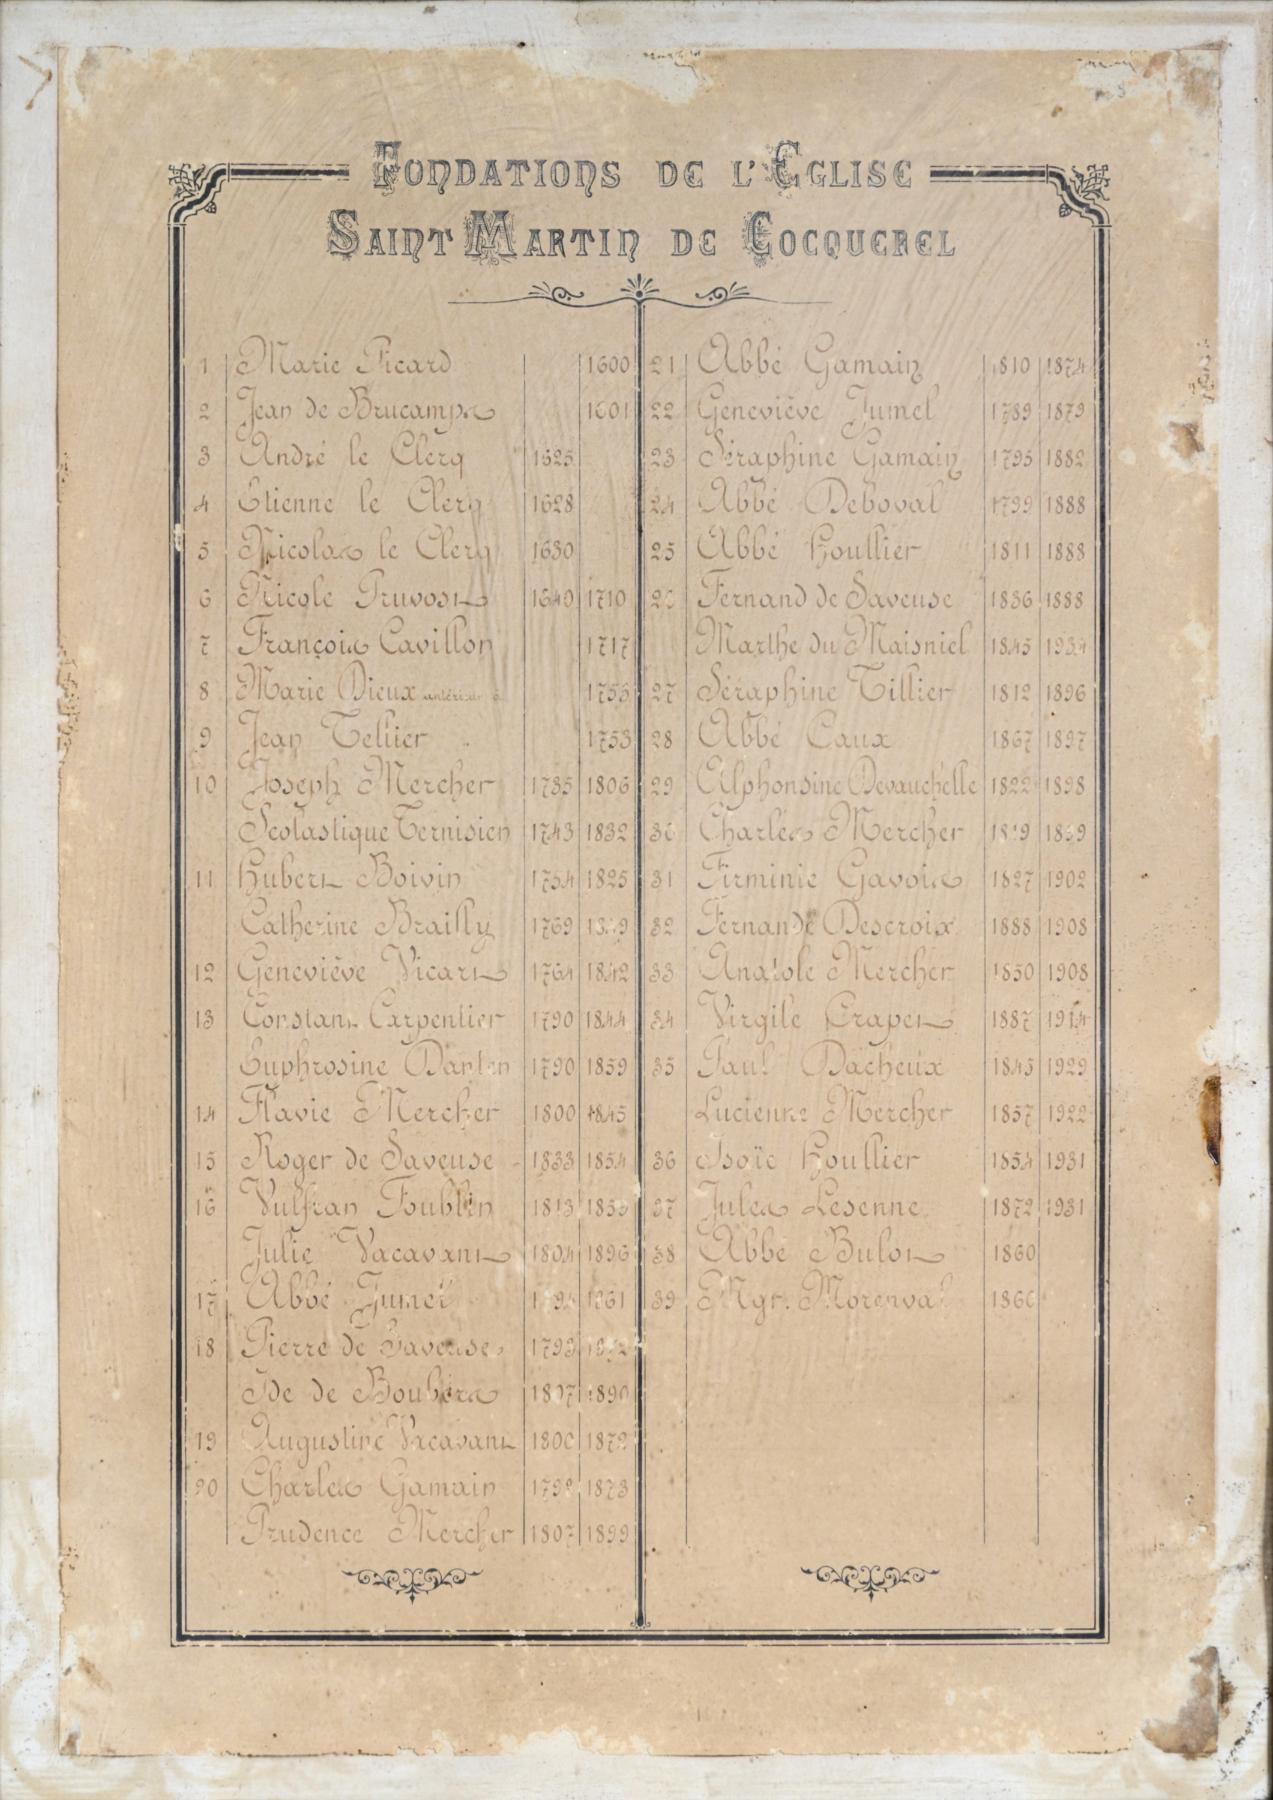 Fondations de l'Eglise
Saint Martin de Cocquerel
1 Marie Picard 1600
2 Jean de Brucamps 1601
3 André le Clerq 1625
4 Etienne le Clerq 1628
5 Nicolas le Clerq 1630
6 Nicole Pruvost 1640 1710
7 François Cavillon 1717
8 Marie Dieux antérieur à 1753
9 Jean Tellier 1753
10 Joseph Mercher 1735 1806
Scolastique Ternisien 1743 1832
11 Hubert Boivin 1754 1825
Catherine Brailly 1769
12 Geneviève Vicart 1764 1842
13 Constant Carpentier 1790 1844
Euphrosine Danten 1790 1859
14 Flavie Mercher 1800 1845
15 Roger de Saveuse 1833 1854
16 Vulfran Foublin 1813
Julie Vacavant 1804 1896
17 Abbé Jumel 1861
18 Pierre de Saveuse 1793
Ide de Boubers 1807 1890
19 Augustine Vacavant 1800 1872
20 Charles Gamain 1792 1873
Prudence Mercher 1807 1899
21 Abbé Gamain 1810 1874
22 Geneviève Jumel 1789 1879
23 Séraphine Gamain 1795 1882
24 Abbé Deboval 1799 1888
25 Abbé Houllier 1811 1888
26 Fernand de Saveuse 1836 1888
Marthe du Maisniel 1845 1934
27 Séraphine Tillier 1812 1896
28 Abbé Caux 1867 1897
29 Alphonsine Devauchelle 1822 1898
30 Charles Mercher 1819
31 Firminie Gavois 1827 1902
32 Fernande Descroix 1888 1908
33 Anatole Mercher 1850 1908
34 Virgile Crapet 1887 1914
35 Paul Dacheux 1845 1929
Lucienne Mercher 1857 1922
36 Isoïe Houllier 1854 1931
37 Jules Lesenne 1872 1931
38 Abbé Bulot 1860
39 Mgr. Morenval 1866